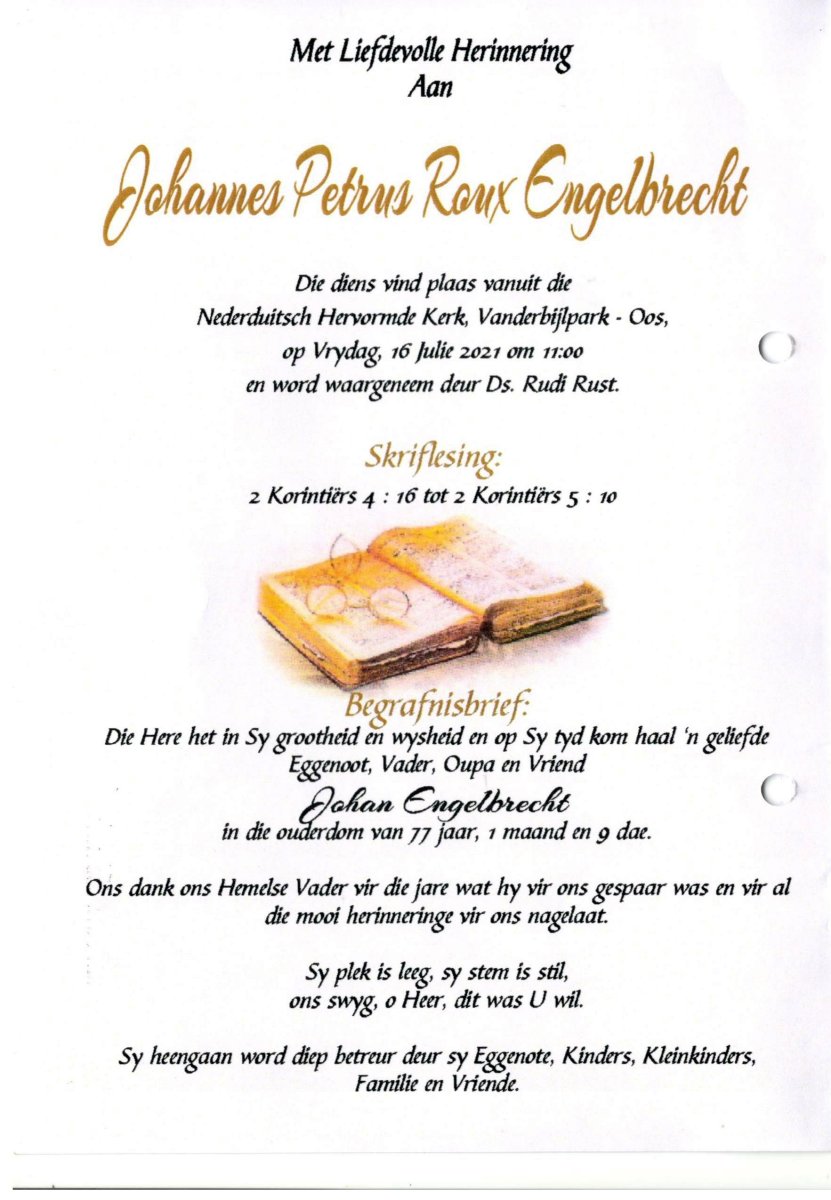 Met Liefdevolle Herinnering
Aan
Johannes Petrus Roux Engelbrecht
Die diens vind plaas vanuit die
Nederduitsch Hervormde Kerk, Vanderbijlpark - Oos,
op Vrydag, 16 Julie 2021 om 11:00
en word waargeneem deur Ds. Rudi Rust.
Skriflesing:
2 Korintiërs 4 : 16 tot 2 Korintiërs 5 : 10
Begrafnisbrief:
Die Here het in Sy grootheid en wysheid en op Sy tyd kom haal 'n geliefde
Eggenoot, Vader, Oupa en Vriend
Johan Engelbrecht
in die ouderdom van 77 jaar, 1 maand en 9 dae.
Ons dank ons Hemelse Vader vir die jare wat hy vir ons gespaar was en vir al
die mooi herinneringe vir ons nagelaat.
Sy plek is leeg, sy stem is stil,
ons swyg, o Heer, dit was U wil.
Sy heengaan word diep betreur deur sy Eggenote, Kinders, Kleinkinders,
Familie en Vriende.